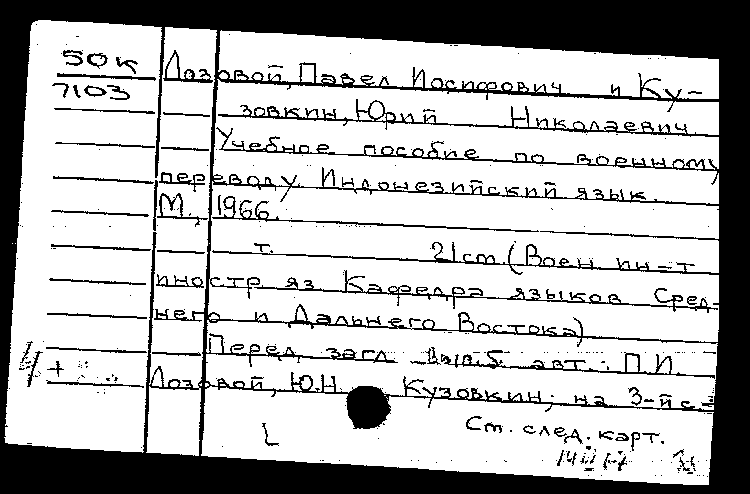 50К
7103
Лозовой, Павел Иосифович и Ку-
зовкин, Юрий Николаевич
Учебное пособие по военному
переводу. Индонезийский язык.
М., 1966.
т. 21cm (Воен. ин-т
иностр яз Кафедра языков Сред-
него и Дальнего Востока)
Перед загл авт.: П.И.
Лозовой, Ю.Н. Кузовкин; на 3-й с.=
См. след. карт.